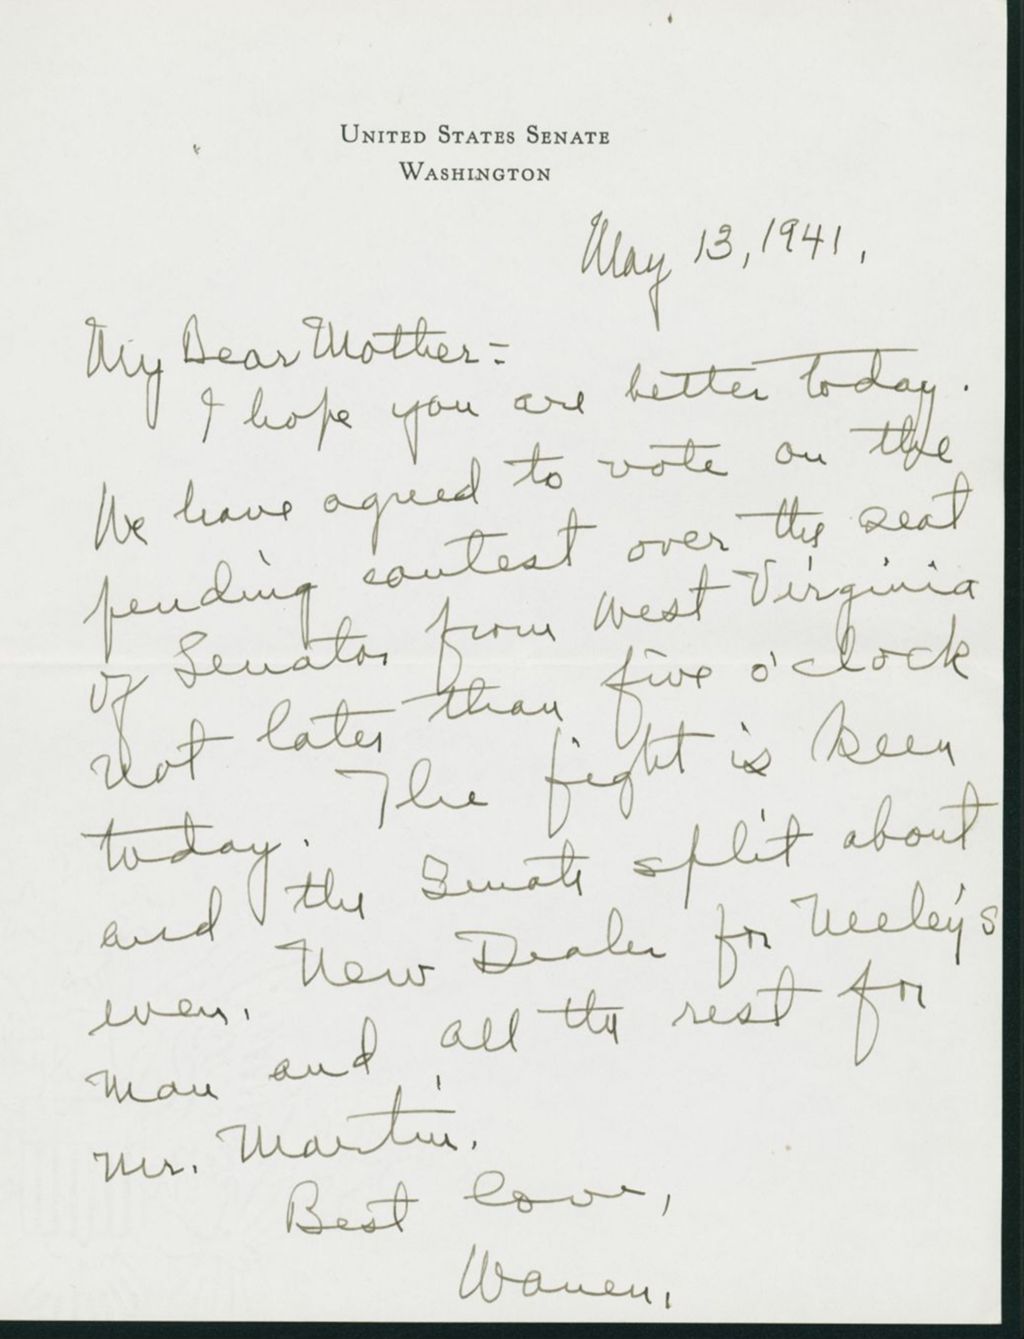 UNITED STATES SENATE
WASHINGTON
May 13, 1941.
My Dear Mother:-
I hope you are better today.
We have agreed to vote on the
pending contest over the seat
of Senator from West Virginia
not later than five o'clock
today. The fight is keen
and the Senate split about
even. New Dealer for Neeley's
man and all the rest for
Mr. Martin.
Best love,
Warren.